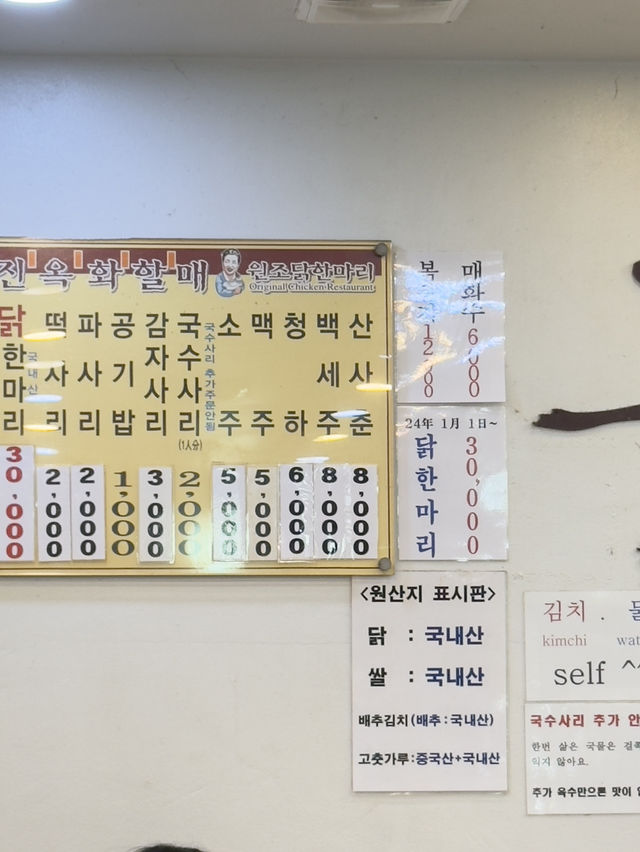 진옥화할매 원조닭한마리
Original Chicken Restaurant
닭한마리 국내산 30,000
떡사리 2,000
파사리 2,000
공기밥 1,000
감자사리 3,000
국수사리 (1人分) 2,000
국수사리 추가주문안됨
소주 5,000
맥주 5,000
청하 6,000
백세주 8,000
산사춘 8,000
매화수 6,000
24年 1月 1日~
닭한마리 30,000
<원산지 표시판>
닭 : 국내산
쌀 : 국내산
배추김치(배추:국내산)
고춧가루:중국산+국내산
김치 .
kimchi
self ^^
국수사리 추가 안
한번 삶은 국물은 걸쭉
익지 않아요.
추가 육수만으론 맛이